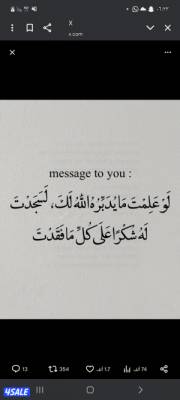 X
x.com
message to you :
لَوْ عَلِمْتَ مَا يُدَبِّرُهُ اللهُ لَكَ، لَسَجَدْتَ
لَهُ شُكْرًا عَلَى كُلِّ مَا فَقَدْتَ
13 354 1.7 ألف 74 ألف
4SALE